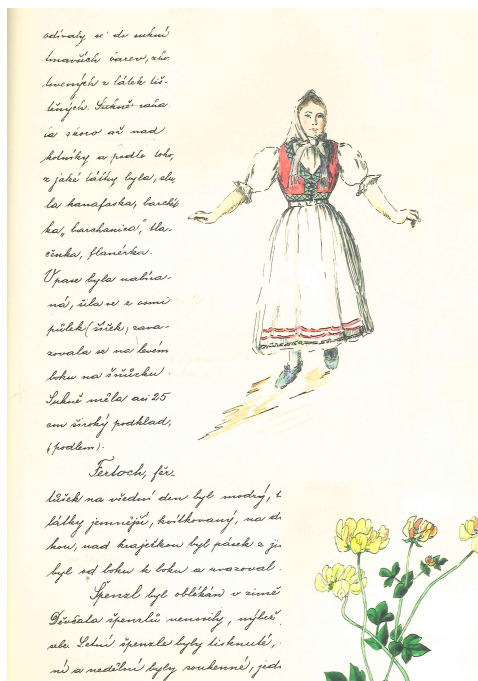 odívaly se do sukní
tmavších barev, zho-
tovených z látek tiš-
těných. Sukně saha-
la skoro až nad
kotníky a podle toho,
z jaké látky byla, slu-
la kanafaska, barchet-
ka, "barchanica", tla-
čenka, flanérka.
V pase byla nabíra-
ná, šila se z osmi
půlek (šíček, zava-
zovala se na levém
boku na šňůrku.
Sukně měla asi 25
cm široký podklad,
(podlem).
Fertoch, fěr-
tůšek na všední den byl modrý, t
látky jemnější, kvítkovaný, na d
kou, nad kraječkou byl pásek z ji
byl od boku k boku a zvazoval
Špenzl byl oblékán v zimě
Děvčata špenzlů nenosily, nýbrž
sebe. Letní špenzle byly tisknuté,
ní a nedělní byly soukenné, jed